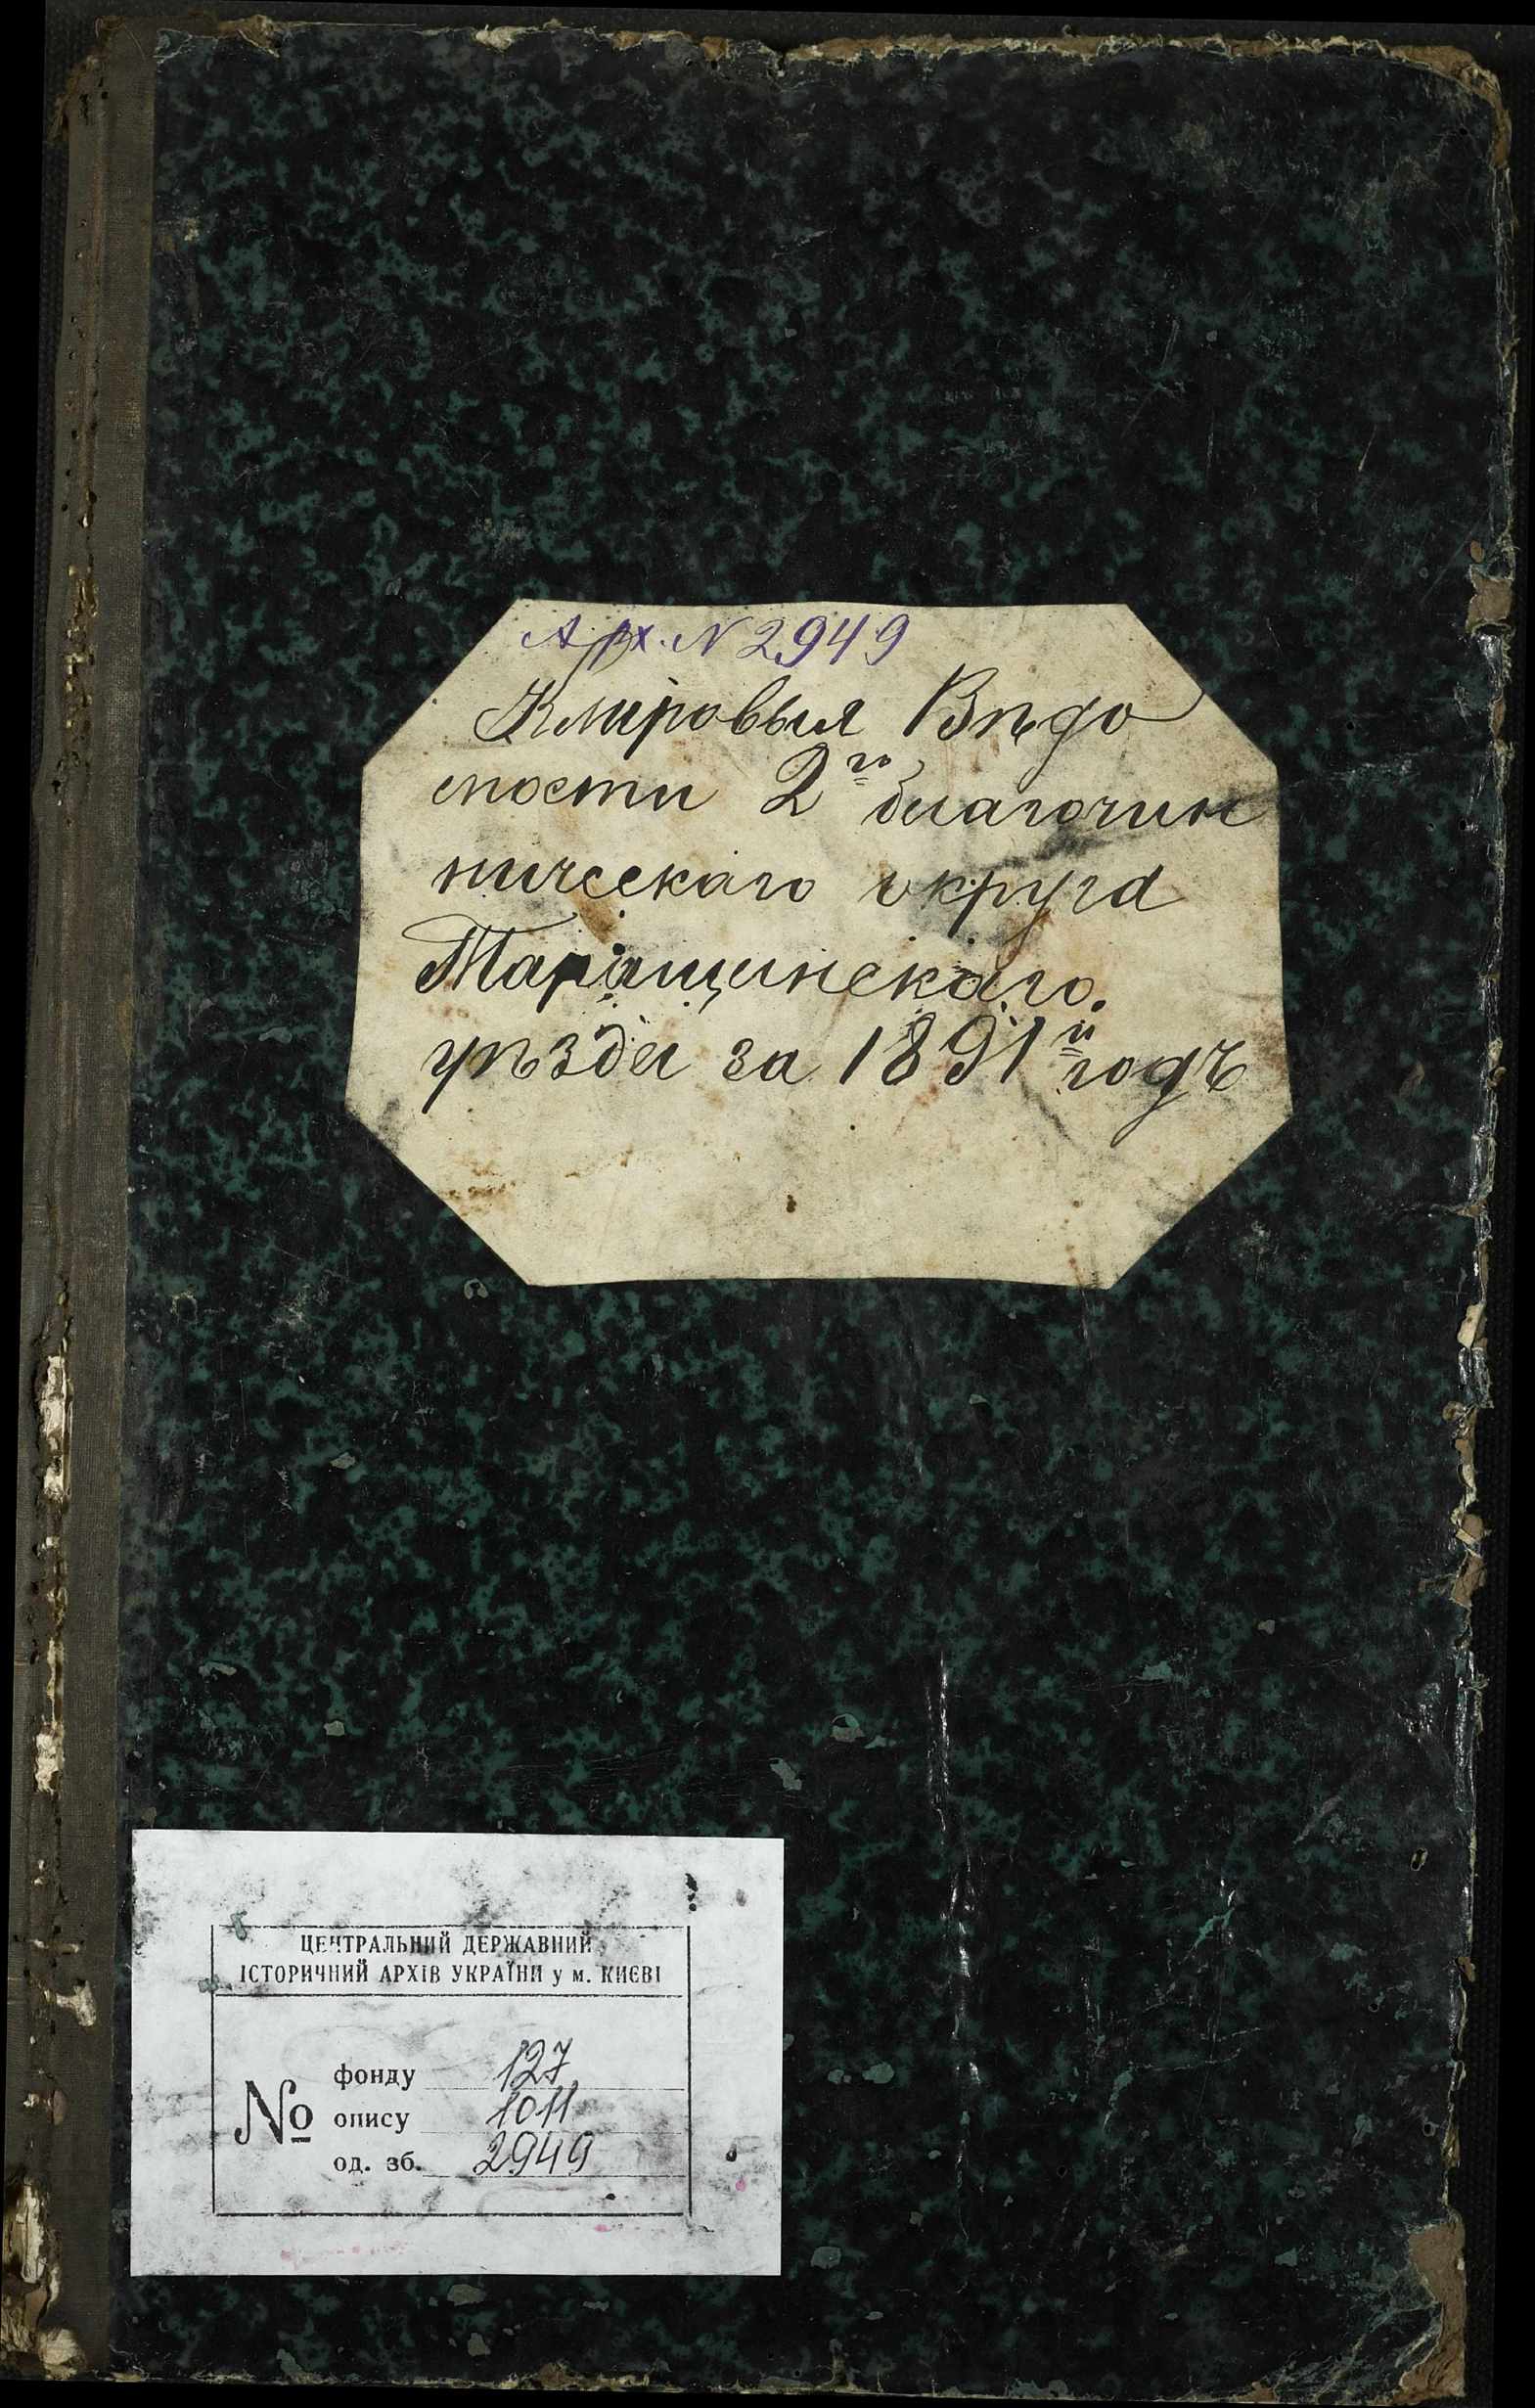 Арх. N 2949
Клировыя Вѣдо
мости 2го благочин
ническаго округа
Таращинскаго.
уѣзда за 1891й годъ
ЦЕНТРАЛЬНИЙ ДЕРЖАВНИЙ
ІСТОРИЧНИЙ АРХІВ УКРАЇНИ у м. КИЄВІ
№
фонду 127
опису 1011
од. зб. 2949